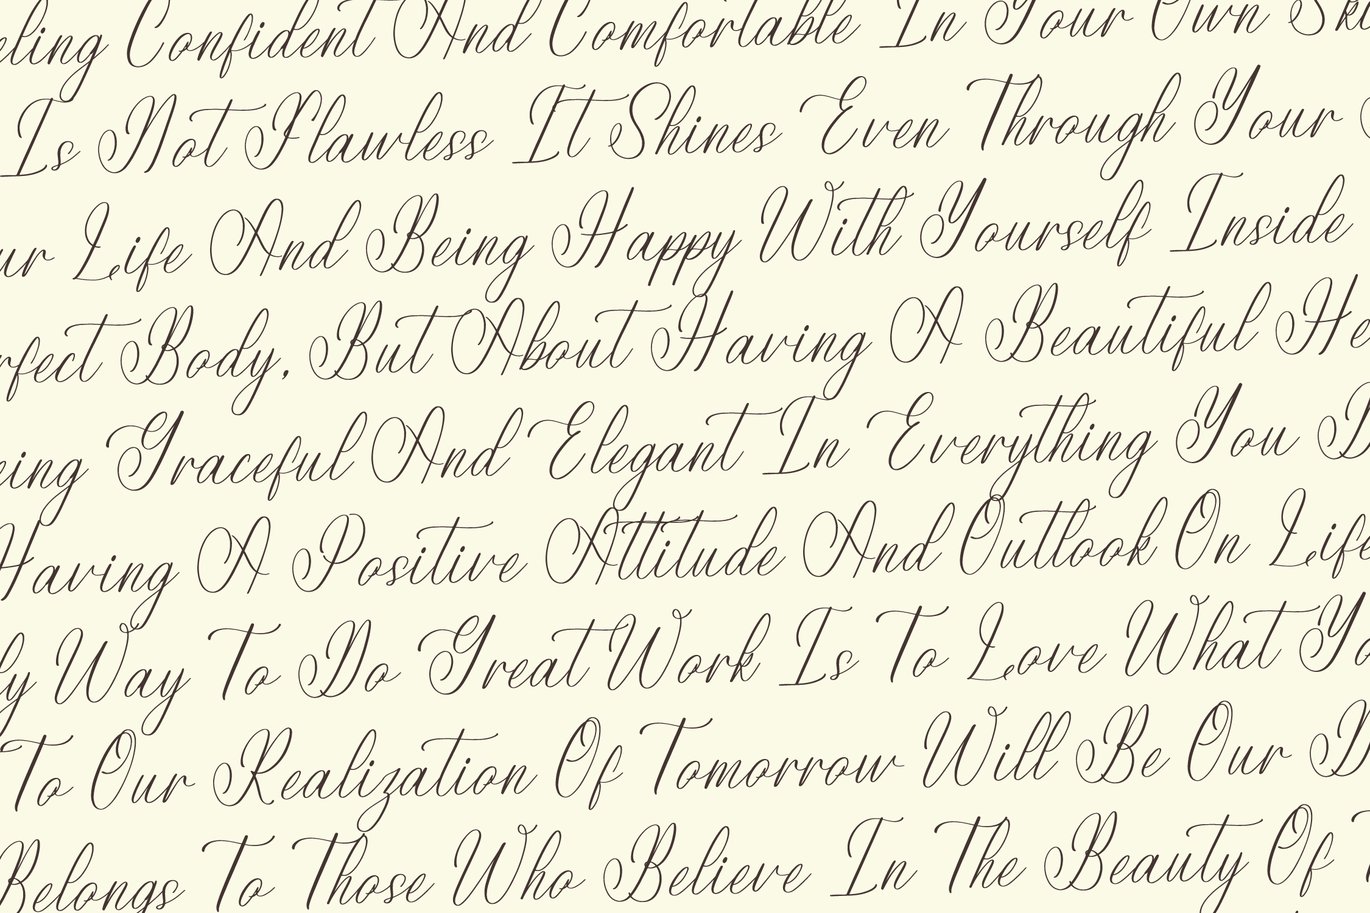 eling Confident And Comfortable In Your Own Sk
Is Not Flawless It Shines Even Through Your
ur Life And Being Happy With Yourself Inside
rfect Body, But About Having A Beautiful He
eing Graceful And Elegant In Everything You D
Having A Positive Attitude And Outlook On Life
ly Way To Do Great Work Is To Love What Yo
To Our Realization Of Tomorrow Will Be Our D
Belongs To Those Who Believe In The Beauty Of T